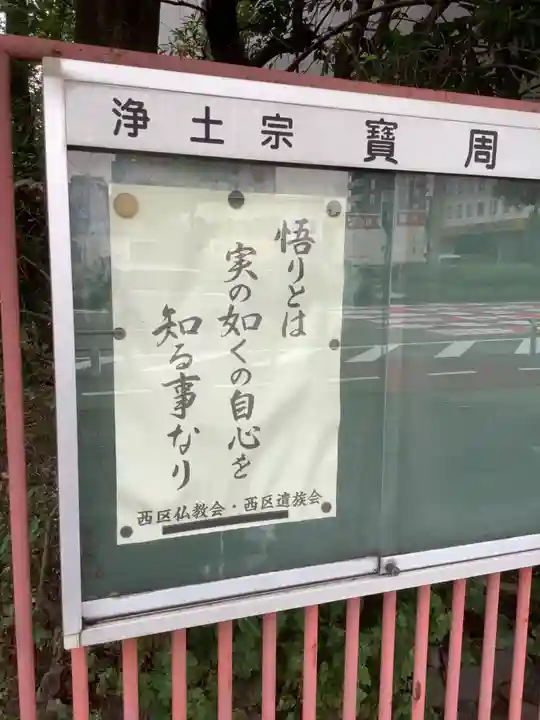 浄土宗 寳周
悟りとは
実の如くの自心を
知る事なり
西区仏教会・西区遺族会